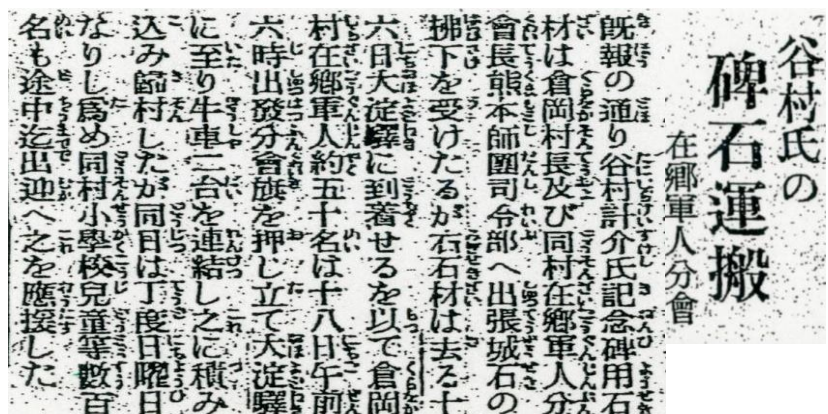 谷村氏の
碑石運搬
在郷軍人分會
既報の通り谷村計介氏記念碑用石
材は倉岡村長及び同村在郷軍人分
會長熊本師團司令部へ出張城石の
拂下を受けたるが右石材は去る十
六日大淀驛に到着せるを以て倉岡
村在郷軍人約五十名は十八日午前
六時出發分會旗を押し立て大淀驛
に至り牛車二台を連結し之に積み
込み歸村したが同日は丁度日曜日
なりし爲め同村小學校兒童等數百
名も途中迄出迎へ之を應援した